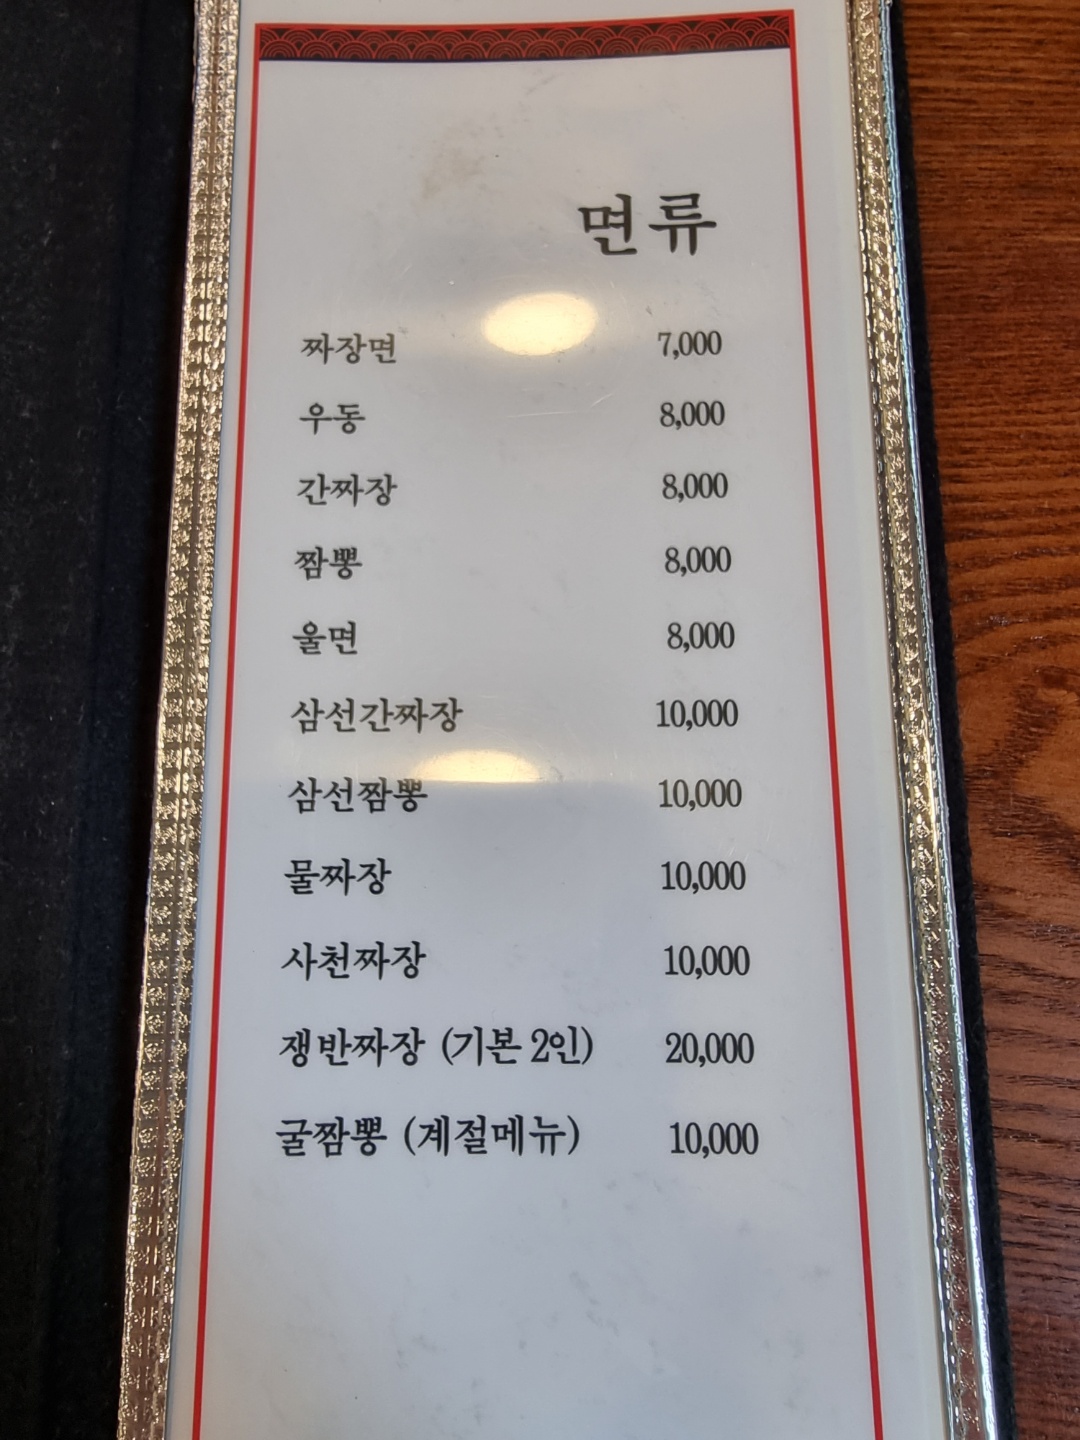 면류
짜장면 7,000
우동 8,000
간짜장 8,000
짬뽕 8,000
울면 8,000
삼선간짜장 10,000
삼선짬뽕 10,000
물짜장 10,000
사천짜장 10,000
쟁반짜장 (기본 2인) 20,000
굴짬뽕 (계절메뉴) 10,000